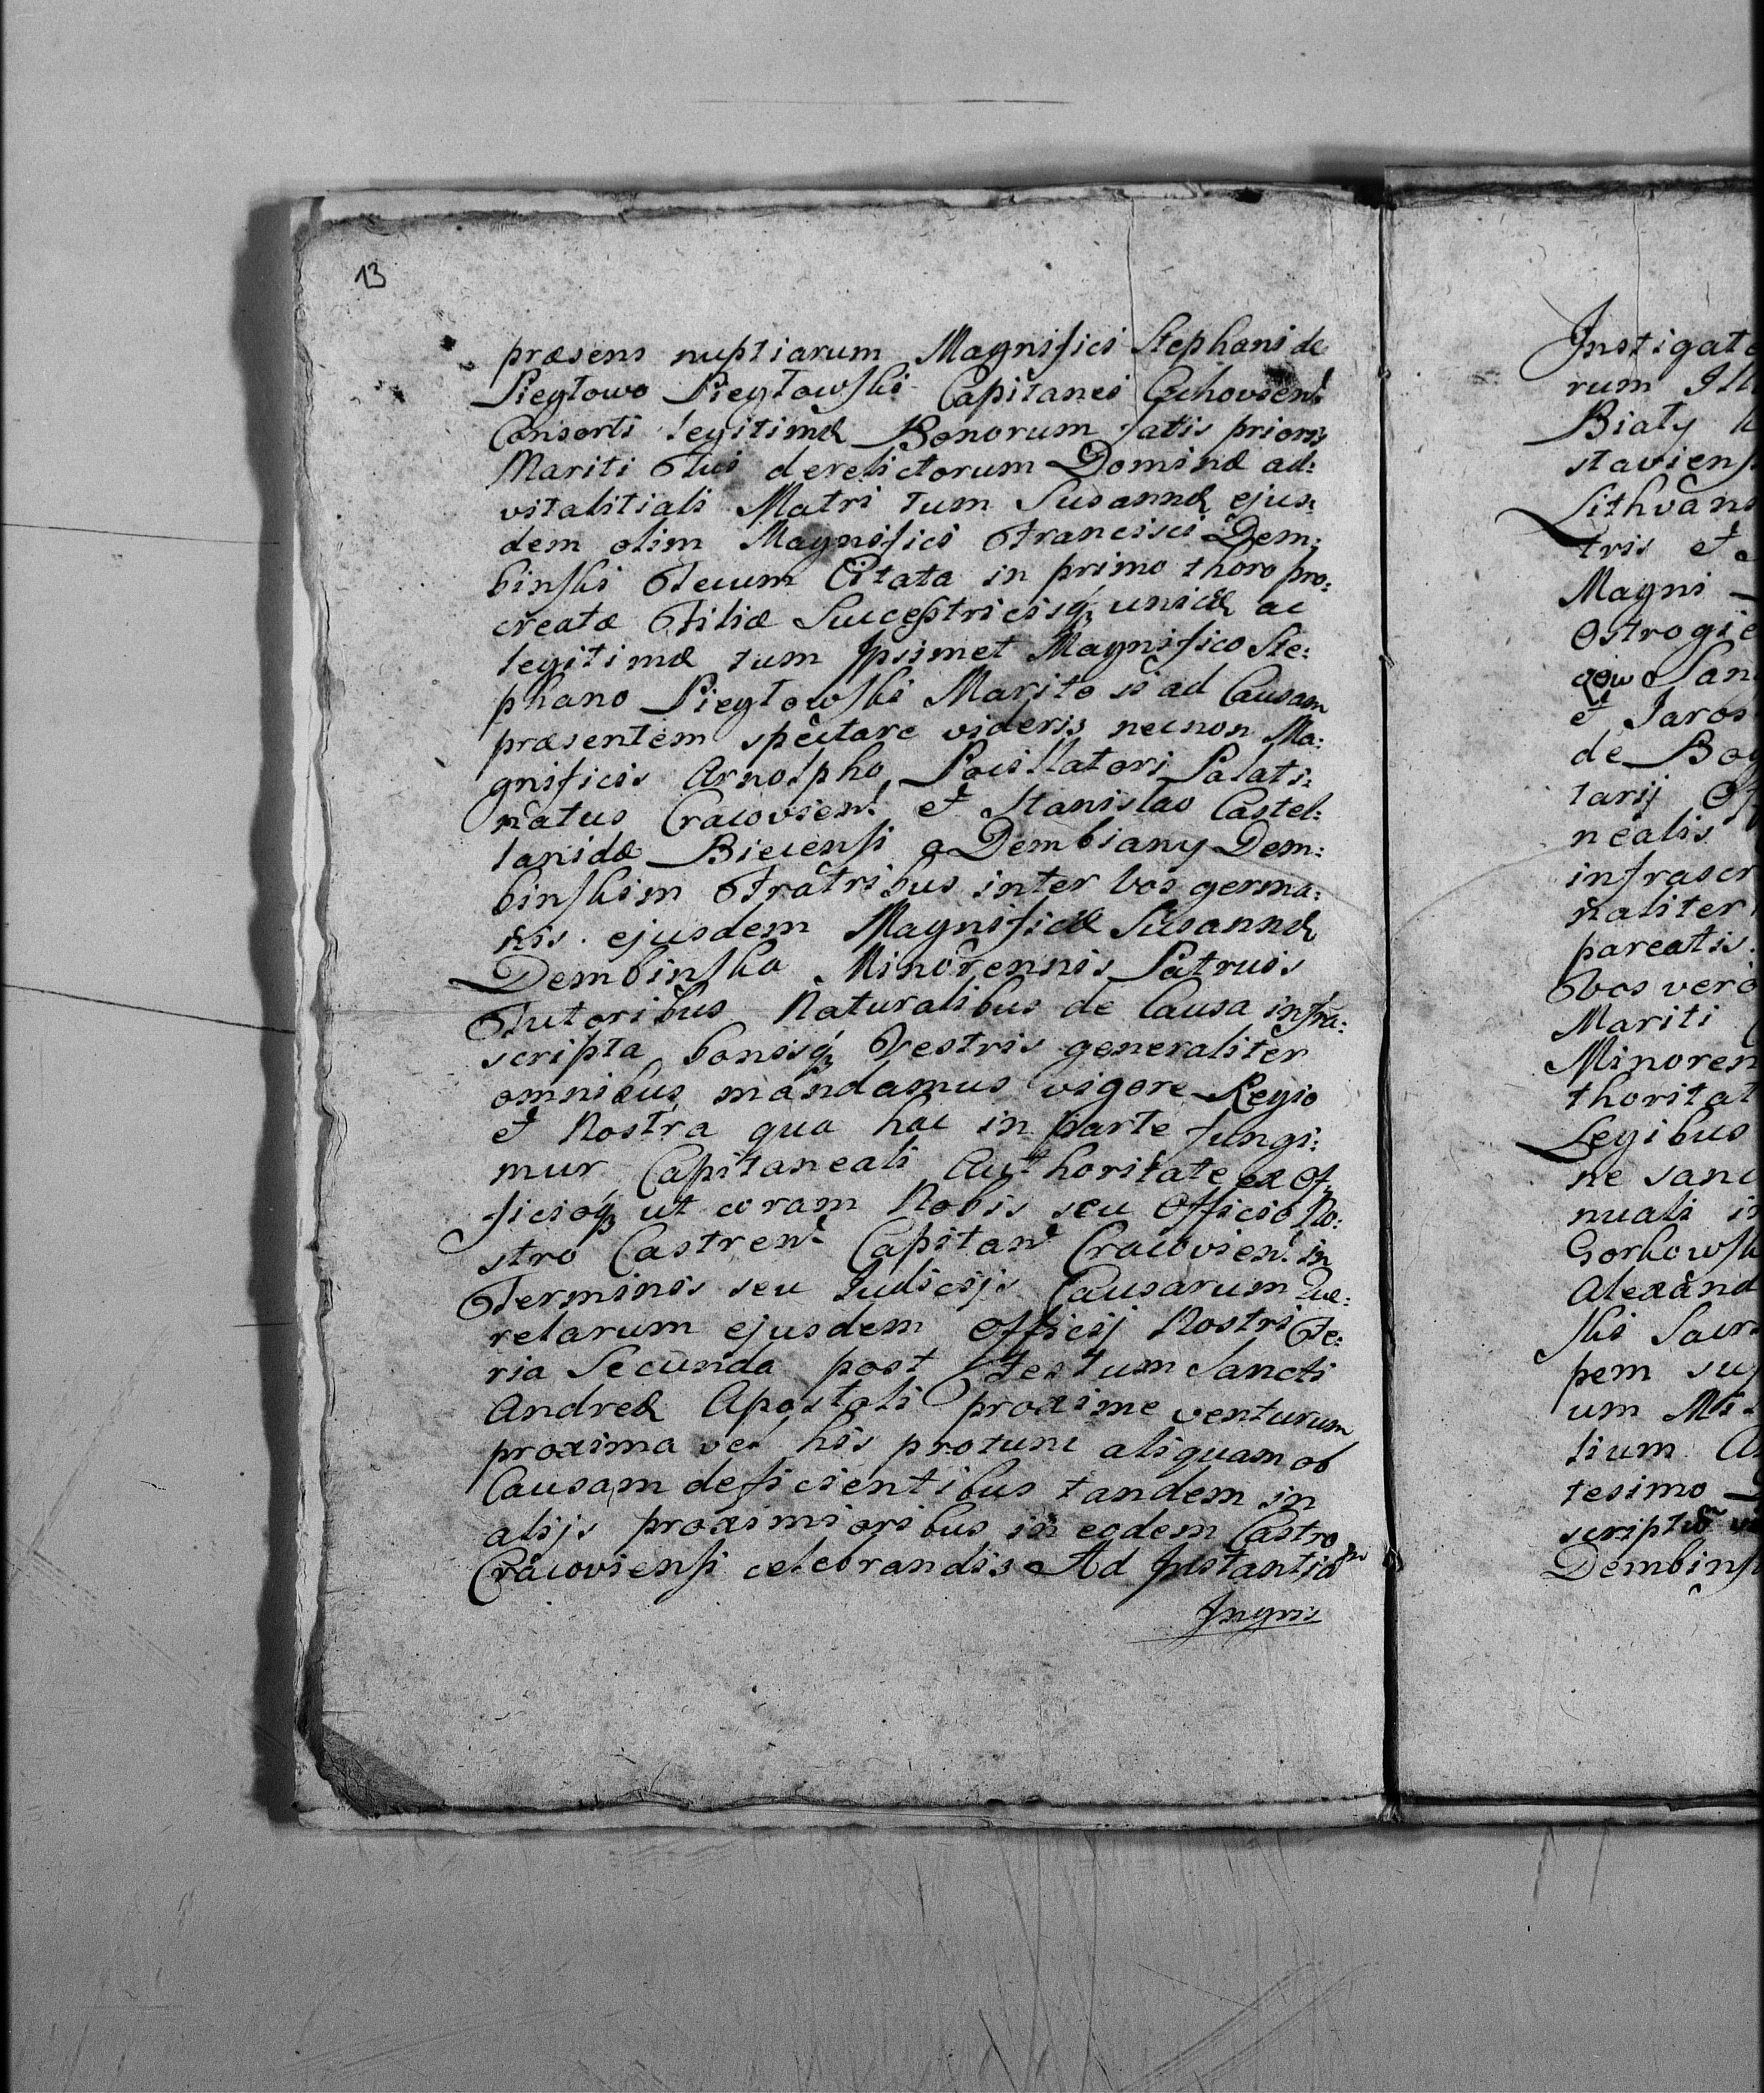 13
præsens nuptiarum Magnifici Stephani de
Pieglowo Pieglowski Capitanei
Consorti legitimæ Bonorum satis prioris
Mariti Tui derelictorum Dominæ ad:
vitalitiali Matri tum Susannæ ejus:
dem olim Magnifici Francisci Dem:
binski Tecum Citata in primo thoro pro:
creatæ Filiæ Sucestricisq unicæ ac
legitimæ tum Ipsimet Magnifico Ste:
phano Pieglowski Marito si ad Causam
præsentem spectare videris necnon Ma:
gnificis Arnolpho Pocillatori Palati:
natus Cracovien: et Stanislao Castel:
lanidæ Biecensi a Dembiany Dem:
binskim Fratribus inter vos germa:
nis ejusdem Magnificæ Susannæ
Dembinska Minorennis Patruis
Tutoribus Naturalibus de Causa infra:
scripta bonisq Vestris generaliter
omnibus mandamus vigore Regio
et Nostra qua hac in parte fungi:
mur Capitaneali Authoritate ex Of:
ficioq ut coram Nobis seu Officio No:
stro Castren: Capitan: Cracovien: in
Terminis seu Iudicijs Causarum Que:
relarum ejusdem Officij Nostri Fe:
ria Secunda post Festum Sancti
Andreæ Apostoli proxime venturum
proxima vel his protunc aliquam ob
Causam deficientibus tandem in
alijs proximioribus in eodem Castro
Cracoviensi celebrandis Ad Instantiam
Ingris
Instigato
rum Ill
Bialy
staviens
Lithvani
tris et
Magni
Ostrogie
San
et Jaros
de Bog
tarij Of
nealis
infrascr
naliter
pareatis
Vos vero
Mariti
Minoren
thoritat
Legibus
ne sanc
nuali in
Gorkowsk
Alexand
ski Sacr
pem su
um Mi
lium
tesimo
scripto
Dembins